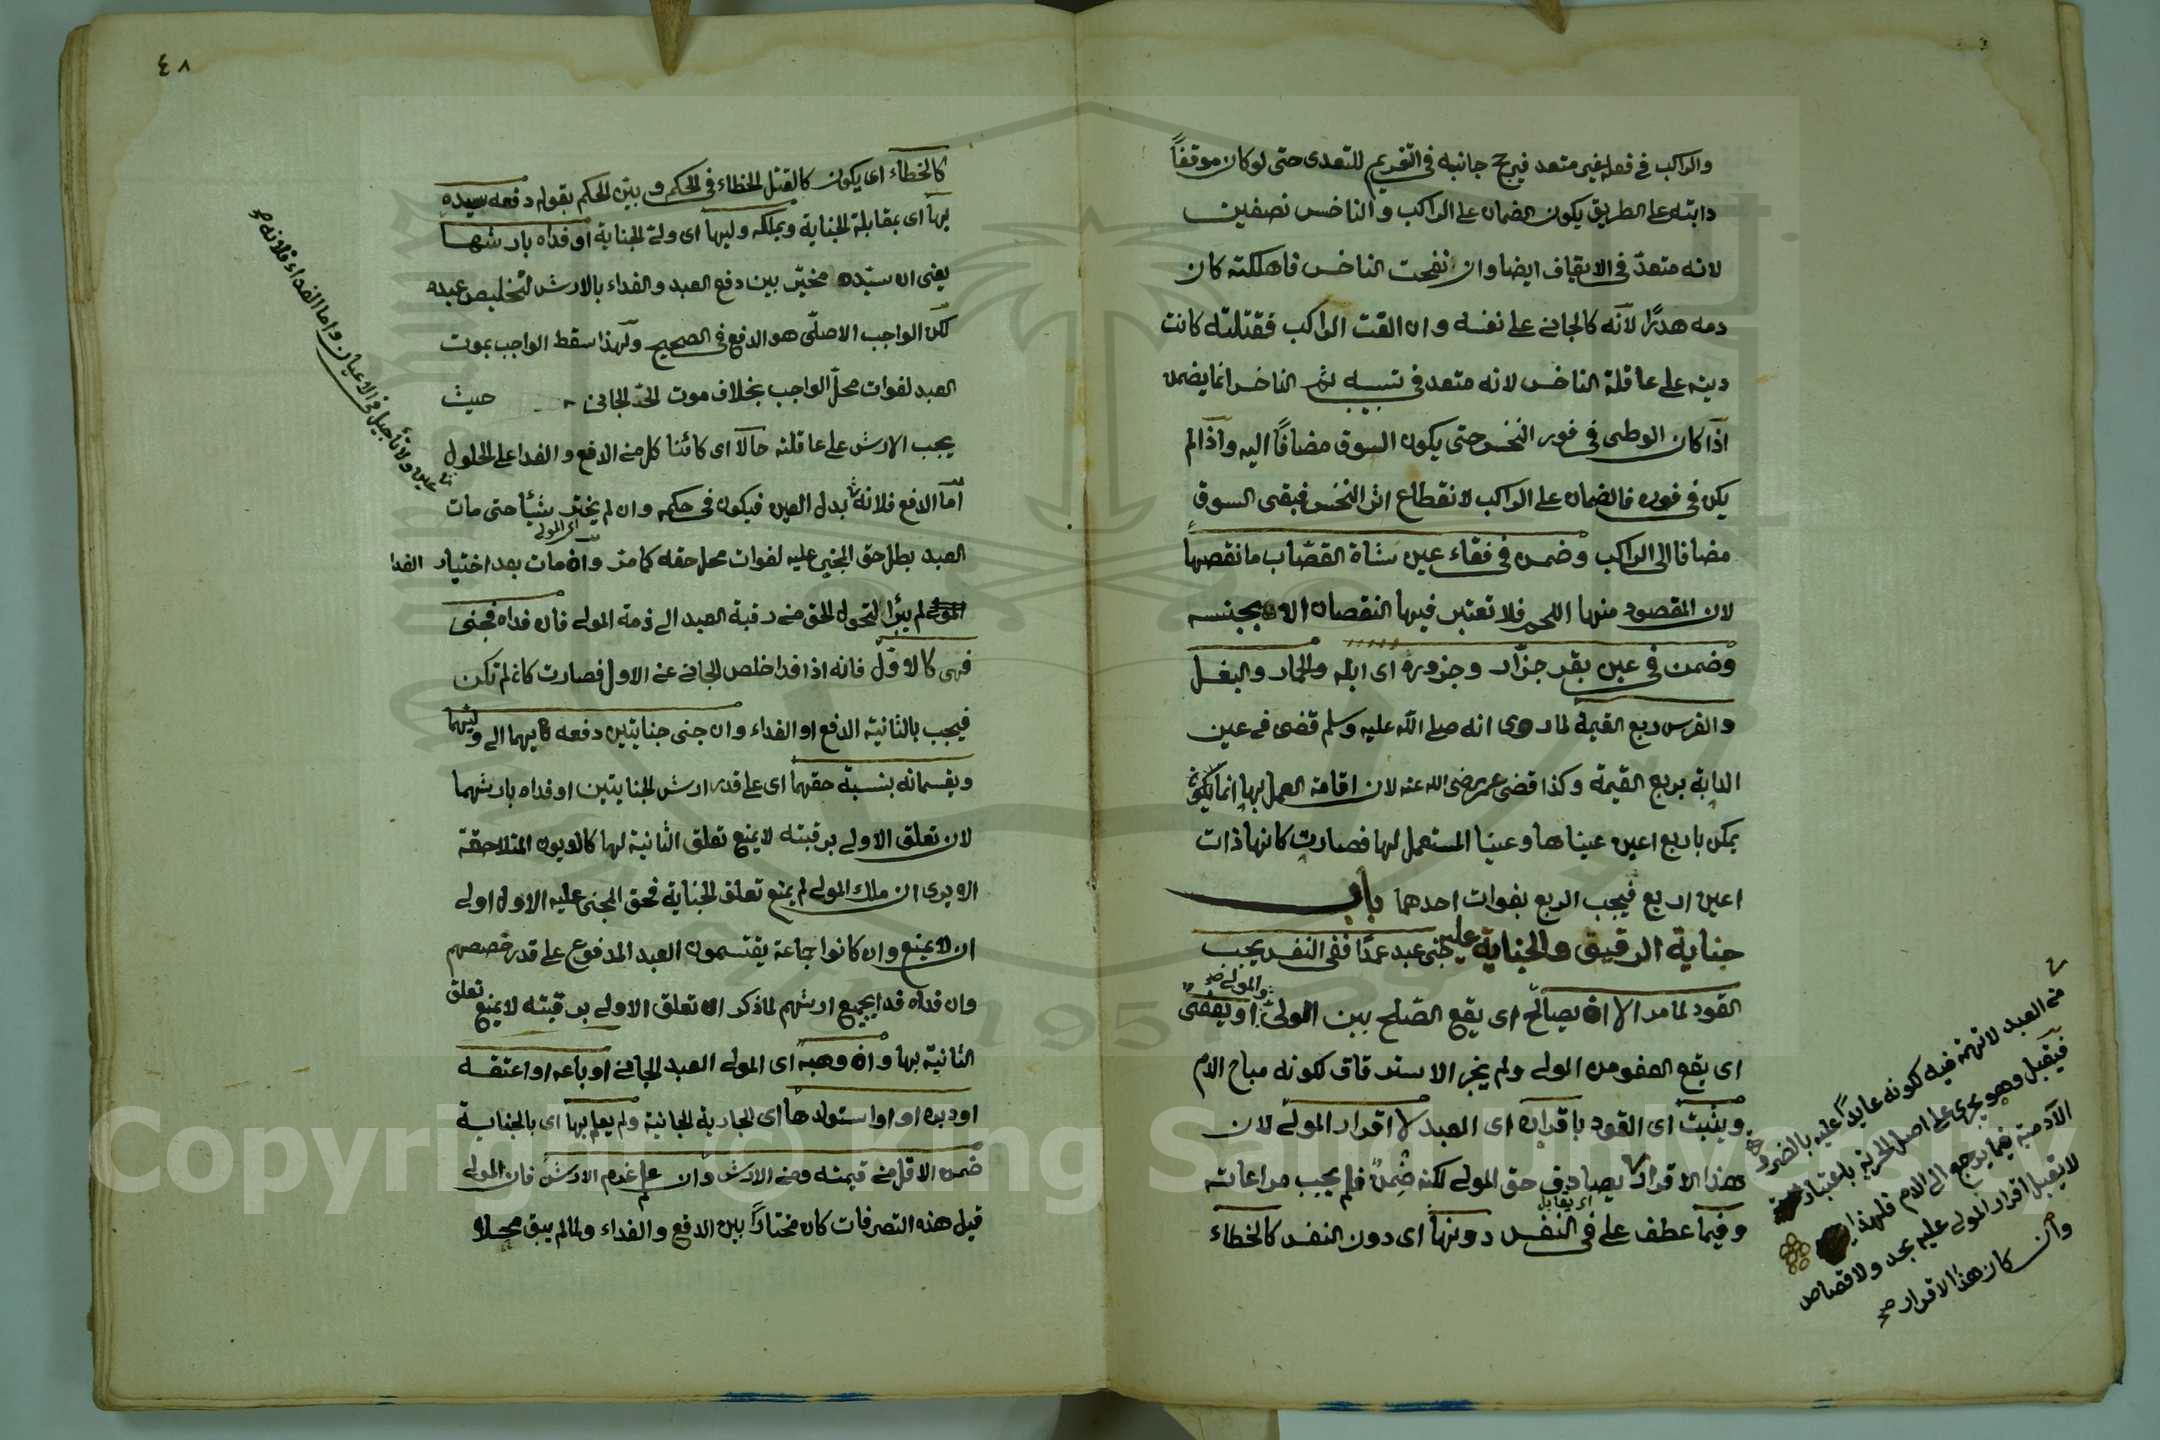 والراكب في فعله غير متعد فيرجح جانبه في التغريم للتعدى حتى لو كان موقفاً
دابته على الطريق يكون الضمان على الراكب والناخس نصفين
لانه متعدّ في الايقاف ايضا وان نفحت الناخس فاهلكته كان
دمه هدرًا لانه كالجاني على نفسه وان القت الراكب فقتلته كانت
ديته على عاقلة الناخس لانه متعد في تسبيبه ثم الناخس انما يضمن
اذا كان الوطى في فور النخس حتى يكون السوق مضافًا اليه واذا لم
يكن في فوره فالضمان على الراكب لانقطاع اثر النخس فبقى السوق
مضافا الى الراكب وضمن في فقاء عين شاة القصّاب ما نقصها
لان المقصود منها اللحم فلا تعتبر فيها النقصان الا بجنسه
وضمن في عين بقر جزّار وجزوره اى ابله والحمار والبغل
والفرس ربع القيمة لما روى انه صلى الله عليه وسلم قضى فى عين
الدابة بربع القيمة وكذا قضى عمر رضى الله عنه لان اقامة العمل بها انما
يمكن باربع اعين عيناها وعينا المستعمل لها فصارت كانها ذات
اعين اربع فيجب الربع بفوات احدهما باب
جناية الرقيق والجناية عليه جنى عبد عمدًا ففى النفس يجب
القود لما مر الا ان يصالح اى يقع الصّلح بين المولىّ والمولى صح او يعفى
اى يقع العفو من المولى ولم يجز الاسترقاق لكونه مباح الدم
ويثبت اى القود باقراره اى العبد لا اقرار المولى لان
هذا الاقرار لا يصادف حق المولى لكنه ضِمنً فلم يجب مراعاته
وفيما عطف على في النفس دونها اى دون النفس كالخطاء
من العبد لا تهمة فيه لكونه عايدًا عليه بالضرر
فيقبل وهو يجرى على اصل الحرية باعتبار
الآدمية فيما يرجع الى الدم فلهذا
لا يقبل اقرار المولى عليه بحد ولا قصاص
وان كان هذا الاقرار صح
٤٨
كالخطاء اى يكون كالقتل الخطاء في الحكم وبيّن الحكم بقوله دفعه سيده
بها اى بمقابلة الجناية ويملكه وليها اى ولىّ الجناية او فداه بارشها
يعنى ان سيّده مخيّر بين دفع العبد والفداء بالارش لتخليص عبده
لكن الواجب الاصلّى هو الدفع في الصحيح ولهذا سقط الواجب بموت
العبد لفوات محلّ الواجب بخلاف موت الحرّ الجانى حيث
يجب الارش على عاقلته حالا اى كائنا كل من الدفع والفدا على الحلول
امّا الدفع فلانه بدل العين فيكون فى حكمه وان لم يختر شيأ حتى مات
اى المولى
العبد بطل حق المجنى عليه لفوات محل حقه كما مر وان مات بعد اختيار الفدا
لم يبرأ لتحول الحق من رقبة العبد الى ذمة المولى فان فداه فجنى
فهى كالاوّل فانه اذا فدا خلص الجانى عن الاول فصارت كان لم تكن
فيجب بالثانية الدفع او الفداء وان جنى جنايتين دفعه بهما الى وليهما
ويقسمانه بنسبة حقهما اى على قدر ارش الجنايتين او فداه بارشهما
لان تعلق الاولى برقبته لا يمنع تعلق الثانية لها كالديون المتلاحقة
الا يرى ان ملك المولى لم يمنع تعلق الجناية فحق المجنى عليه الاول اولى
ان لا يمنع وان كانوا جماعة يقتسمون العبد المدفوع على قدر حصصهم
وان فداه فدا بجميع ارشهم لما ذكر ان تعلق الاولى برقبته لا يمنع تعلق
الثانية بها وان وهبه اى المولى العبد الجانى او باعه او اعتقه
او دبره او استولدها اى الجارية الجانية ولم يعلم بها اى بالجناية
ضمن الاقل من قيمته ومن الارش وان علم غرم الارش فان المولى
قبل هذه التصرفات كان مختارًا بين الدفع والفداء ولما لم يبق محلا
عين ولا تأجيل فى الاعيان واما الفداء فلانه صح